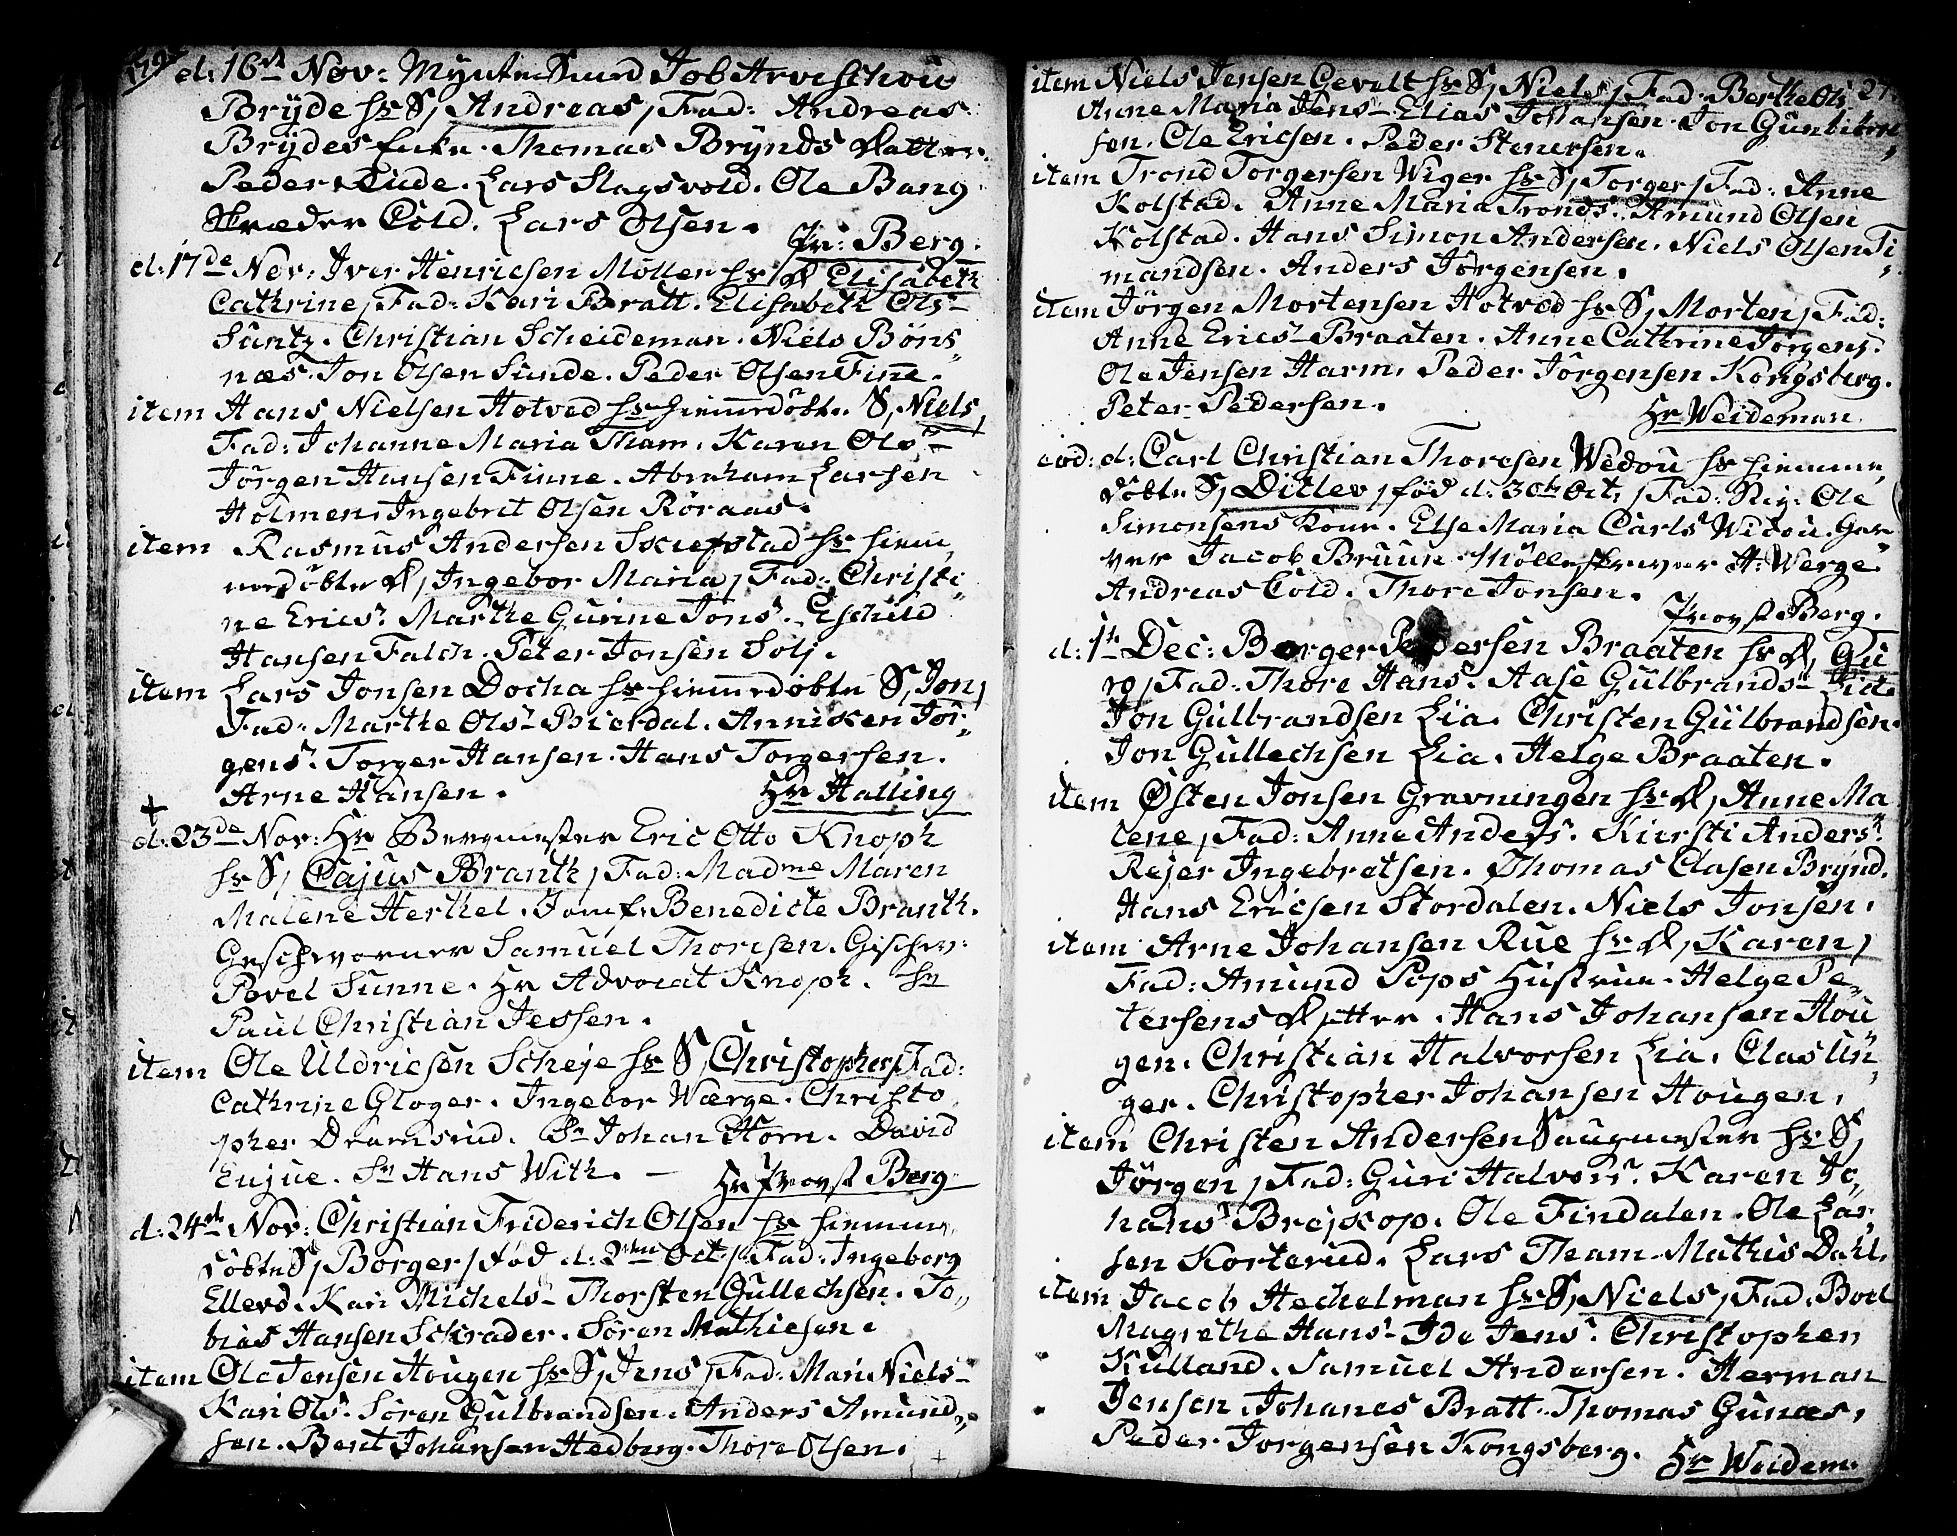 d: 16de Nov: Mynter Svend Job Arveschou
Bryde hs S, Andreas, Fad: Andreas
Brydes Enke. Thomas Brynds Datter.
Peder Lude. Lars Slagsvold. Ole Bang
Skræder Cold. Lars Olsen.
Pr: Berg.
d: 17de Nov: Iver Henricsen Möller hs D Elisabeth
Cathrine, Fad: Kari Bratt. Elisabeth Ols-
Suntz. Christian Scheideman. Niels Böns
næs. Jon Olsen Sunde. Peder Olsen Finne.
item Hans Nielsen Hotved hs hiemedöbte S, Niels,
Fad: Johanne Maria Tham. Karen Olsr
Jörgen Hansen Finne. Abraham Larsen
Holmen. Ingebret Olsen Röraas.
item Rasmus Andersen Skiefstad hs hiem
medöbte D, Ingebor Maria, Fad: Christi
ne Ericsr Marthe Gurine Jonsr. Eschild
Hansen Falch. Peter Jonsen Solj.
item Lars Jonsen Docka hs hiemedöbte S, Jon,
Fad: Marthe Olsr Bierdal. Anniken Jör
gensr. Torger Hansen. Hans Torgersen.
Arne Hansen.
Hr Halling
d: 23de Nov: Hr Bergmester Eric Otto Knoph
hs S, Cajus Branth, Fad: Madme Maren
Malene Herthel. Jomf: Benedicte Branth.
Geschworner Samuel Thoresen. Geschw:
Povel Sunne. Hr Advocat Knoph. Sr
Paul Christian Jessen.
item Ole Uldricsen Scheje hs S, Christopher, Fad:
Cathrine Gloger. Ingebor Wærge. Christo
pher Dramsrud. Sr Johan Horn. David
Enjue. Sr Hans With.
Hr Provst Berg
d: 24de Nov: Christian Friderich Olsen hs hiemme
döbte S, Börger, fød d: 2den Oct:, Fad: Ingeborg
Ellevd. Kari Michels- Thorsten Gullechsen. To
bias Hansen Schrader. Sören Mathiesen.
item Ole Jensen Hougen hs S, Jens, Fad: Mari Niels-
Kari Ols. Sören Gulbrandsen. Anders Amund
sen. Bent Johansen Hedberg. Thore Olsen.
item Niels Jensen Gevelt hs S, Niels, Fad: Berthe Ols
Anne Maria Jens- Elias Johansen. Jon Gunbiörn
sen. Ole Ericsen. Peder Stenersen.
item Trond Torgersen Wiger hs S, Torger, Fad: Anne
Kolstad. Anne Maria Tronds. Amund Olsen
Kolstad. Hans Simon Andersen. Niels Olsen Ti
mandsen. Anders Jörgensen.
item Jörgen Mortensen Hotved hs S, Morten, Fad:
Anne Ericsr Braaten. Anne Cathrine Jörgens.
Ole Jensen Harm. Peder Jörgensen Kongsberg.
Peter Pedersen.
Hr Weideman
eod: d: Carl Christian Thoresen Wedou hs hiemme
döbte S, Ditlev, fød d: 30te Oct:, Fad: Sig: Ole
Simonsens Kone. Else Maria Carls Widou. Gar
ver Jacob Bruun. Mölleskriver A: Werge.
Andreas Cold. Thore Jonsen.
Provst Berg.
d: 1te Dec: Börger Pedersen Braaten hs D, Gu
ro, Fad: Thore Hans. Aase Gulbrands- Lia
Jon Gulbrandsen Lia. Christen Gulbrandsen.
Jon Gullechsen Lia. Helge Braaten.
item Østen Jonsen Gravningen hs D, Anne Ma
lene, Fad: Anne Andersr. Kiersti Andersr
Rejer Ingebretsen. Thomas Clasen Brynd.
Hans Ericsen Stordalen. Niels Jonsen.
item Arne Johansen Rue hs D, Karen,
Fad: Amund Pips Hustrue. Helge Pe
tersens Datter. Hans Johansen Hou
gen. Christian Halvorsen Lia. Clas Un
ger. Christopher Johansen Hougen.
item Christen Andersen Saugmester hs S,
Jörgen, Fad: Guri Halvorsr. Karen Jo
hansr Brejskop. Ole Findalen. Ole Lar
sen Korterud. Lars Tham. Mathis Dahl.
item Jacob Hechelman hs S, Niels, Fad: Boel
Magrethe Hans- Ide Jensr. Christopher
Kulland. Samuel Andersen. Herman
Jensen. Johanes Bratt. Thomas Gunæs.
Peder Jorgensen Kongsberg.
Hr Weidem: